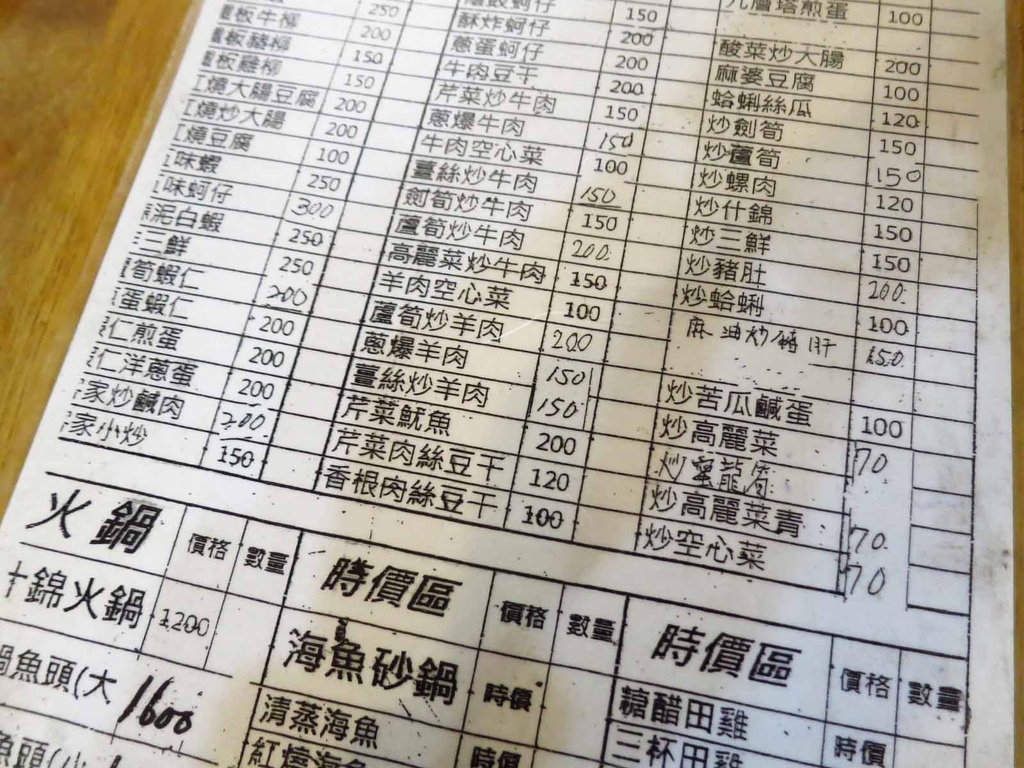 250
板牛柳 200
板豬柳 150
板雞柳 150
燒大腸豆腐 200
燒炒大腸 200
燒豆腐 100
味蝦 250
味蚵仔 300
泥白蝦 250
三鮮 250
筍蝦仁 200
蛋蝦仁 200
仁煎蛋 200
仁洋蔥蛋 200
家炒鹹肉 200
家小炒 150
豉蚵仔 150
酥炸蚵仔 200
蔥蛋蚵仔 200
牛肉豆干 200
芹菜炒牛肉 150
蔥爆牛肉 150
牛肉空心菜 100
薑絲炒牛肉 150
劍筍炒牛肉 150
蘆筍炒牛肉 200
高麗菜炒牛肉 150
羊肉空心菜 100
蘆筍炒羊肉 200
蔥爆羊肉 150
薑絲炒羊肉 150
芹菜魷魚 200
芹菜肉絲豆干 120
香根肉絲豆干 100
九層塔煎蛋 100
酸菜炒大腸 200
麻婆豆腐 100
蛤蜊絲瓜 120
炒劍筍 150
炒蘆筍 150
炒螺肉 120
炒什錦 150
炒三鮮 150
炒豬肚 200
炒蛤蜊 100
麻油炒豬肝 150
炒苦瓜鹹蛋 100
炒高麗菜 70
炒高麗菜青 70
炒空心菜 70
火鍋 價格 數量
什錦火鍋 1200
鍋魚頭(大 1600
魚頭(小
時價區 價格 數量
海魚砂鍋 時價
清蒸海魚
紅燒海魚 時價
時價區 價格 數量
糖醋田雞 時價
三杯田雞